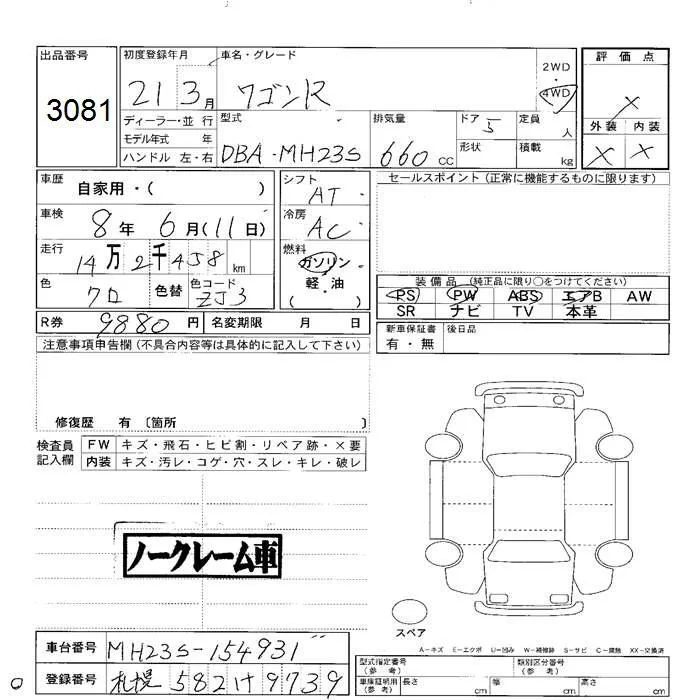 出品番号 3081
初度登録年月 21 3月
車名・グレード ワゴンR
2WD ・ 4WD
評価点 ×
外装 × 内装 ×
ディーラー・並行
モデル年式 年
ハンドル 左・右
型式 DBA-MH23S
排気量 660 cc
ドア 5
形状
定員 人
積載 kg
車歴 自家用・( )
車検 8年 6月(11日)
走行 14万2千458 km
色 クロ 色替 色コード ZJ3
シフト AT
冷房 AC
燃料 ガソリン
軽・油
( )
セールスポイント(正常に機能するものに限ります)
装備品(純正品に限り○をつけてください)
PS PW ABS エアB AW
SR ナビ TV 本革
R券 9880円 名変期限 月 日
新車保証書 有・無
後日品
注意事項申告欄(不具合内容等は具体的に記入して下さい)
修復歴 有〔箇所 〕
検査員記入欄
FW キズ・飛石・ヒビ割・リペア跡・×要
内装 キズ・汚レ・コゲ・穴・スレ・キレ・破レ
ノークレーム車
スペア
A-キズ E-エクボ U-凹み W-補修跡 S-サビ C-腐蝕 XX-交換済
車台番号 MH23S-154931
登録番号 札幌 582 け 9739
型式指定番号(参考)
類別区分番号(参考)
車庫証明用(参考) 長さ cm 幅 cm 高さ cm